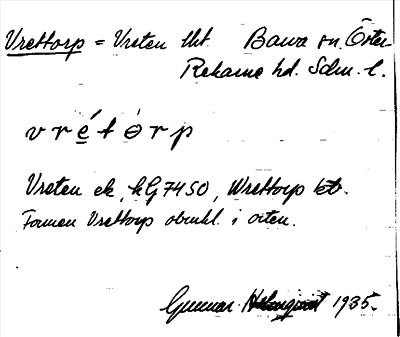 Vrettorp = Vreten tht. Bawa sn. Öster
Rekarne hd. Sdm. l.
v r é t ò r p
Vreten ek, kG 7450, Wrettorp ktr.
Formen Vrettorp obrukl. i orten.
Gunnar 1935.